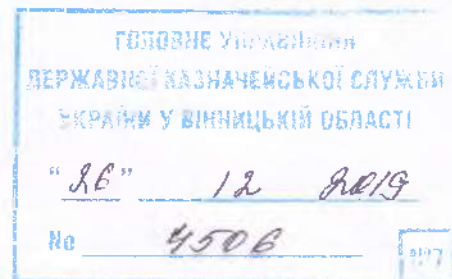 ГОЛОВНЕ УПРАВЛІННЯ
ДЕРЖАВНОЇ КАЗНАЧЕЙСЬКОЇ СЛУЖБИ
УКРАЇНИ У ВІННИЦЬКІЙ ОБЛАСТІ
"26" 12 2019
№ 4506